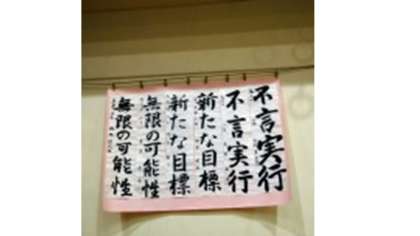 不言実行
不言実行
新たな目標
新たな目標
無限の可能性
無限の可能性